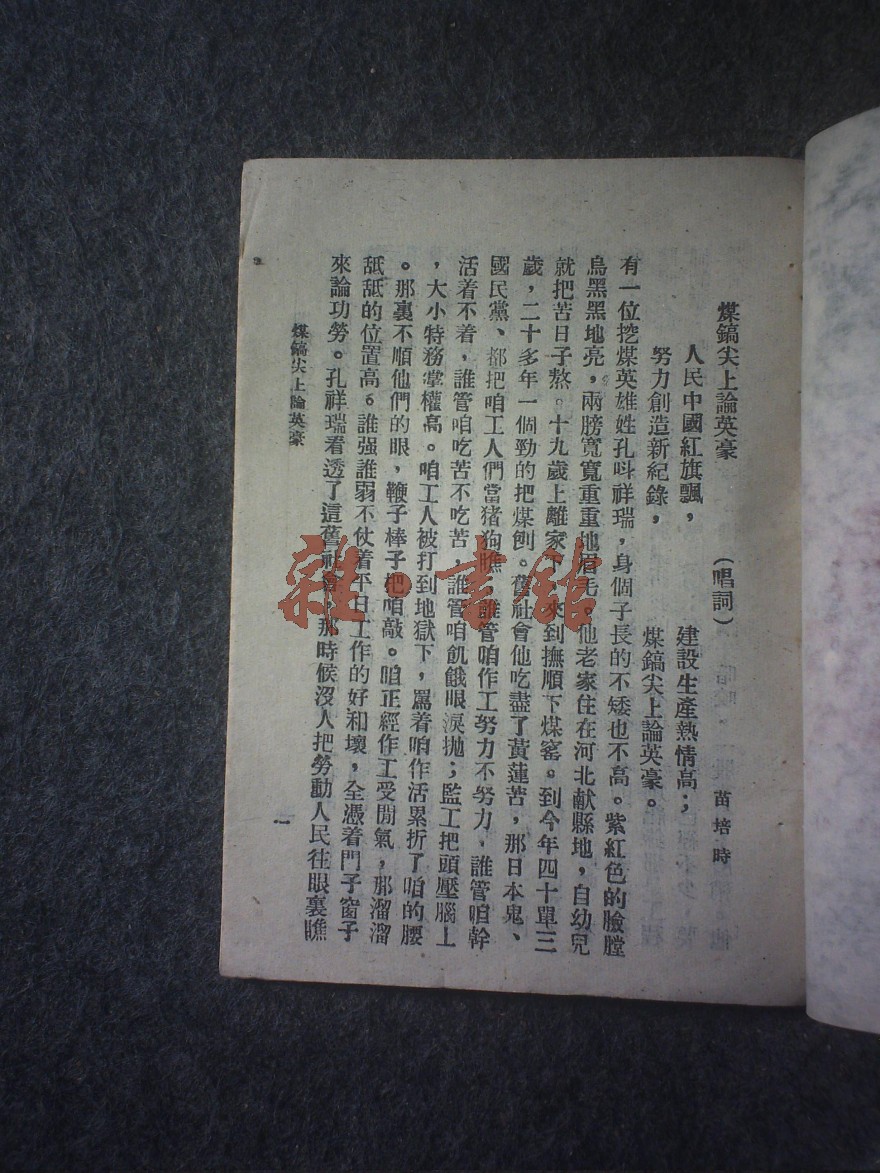 煤鎬尖上論英豪　（唱詞）　苗培時
人民中國紅旗飄，　建設生產熱情高；
努力創造新紀錄，　煤鎬尖上論英豪。
有一位挖煤英雄姓孔呌祥瑞，身個子長的不矮也不高。紫紅色的臉膛
烏黑黑地亮，兩膀寬寬重重地眉毛。他老家住在河北献縣地，自幼兒
就把苦日子熬。十九歲上離家下，來到撫順下煤窰。到今年四十單三
歲，二十多年一個勁的把煤刨。舊社會他吃盡了黃蓮苦，那日本鬼、
國民黨、都把咱工人們當猪狗瞧，誰管咱作工努力不努力，誰管咱幹
活着不着，誰管咱吃苦不吃苦，誰管咱飢餓眼淚拋；監工把頭壓腦上
，大小特務掌權高。咱工人被打到地獄下，罵着咱作活累折了咱的腰
。那裏不順他們的眼，鞭子棒子把咱敲。咱正經作工受閒氣，那溜溜
舐舐的位置高。誰强誰弱不仗着平日工作的好和壞，全憑着門子窗子
來論功勞。孔祥瑞看透了這舊社會，那時候沒人把勞動人民往眼裏瞧
煤鎬尖上論英豪
一
雜·書館